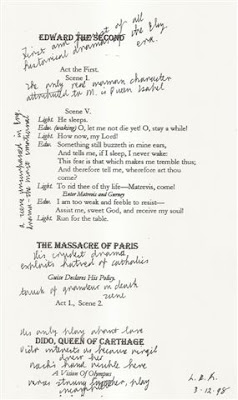 First and
of all
EDWARD THE SECOND
historical dramas of the Eliz.
era.
Act the First.
Scene I.
The only real woman character
attributed to M. is Queen Isabel
Scene V.
Light. He sleeps.
Edw. (waking) O, let me not die yet! O, stay a while!
Light. How now, my Lord!
Edw. Something still buzzeth in mine ears,
And tells me, if I sleep, I never wake:
This fear is that which makes me tremble thus;
And therefore tell me, wherefore art thou
come?
Light. To rid thee of thy life—Matrevis, come!
Enter Matrevis and Gurney
Edw. I am too weak and feeble to resist—
Assist me, sweet God, and receive my soul!
Light. Run for the table.
A scene unsurpassed in Eliz.
drama - the most
THE MASSACRE OF PARIS
His crudest drama,
exploits hatred of catholics
Guise Declares His Policy
touch of grandeur in death
scene
Act I., Scene 2.
His only play about love
DIDO, QUEEN OF CARTHAGE
Dido interests us because Virgil
drew her
Nash's hand visible here
A Vision Of Olympus
play
3-12-98